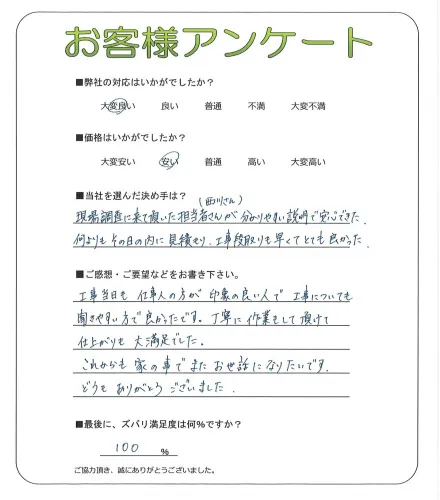 お客様アンケート
■弊社の対応はいかがでしたか？
大変良い 良い 普通 不満 大変不満
■価格はいかがでしたか？
大変安い 安い 普通 高い 大変高い
■当社を選んだ決め手は？
(西川さん)
現場調査に来て頂いた担当者さんが分かりやすい説明で安心できた.
何よりもその日の内に見積もり、工事段取りも早くてとても良かった.
■ご感想・ご要望などをお書き下さい。
工事当日も 仕事人の方が 印象の良い人で 工事についても
聞きやすい方で良かったです。丁寧に作業をして頂けて
仕上がりも 大満足でした。
これからも 家の事でまたお世話になりたいです.
どうも ありがとうございました.
■最後に、ズバリ満足度は何%ですか？
100 %
ご協力頂き、誠にありがとうございました。